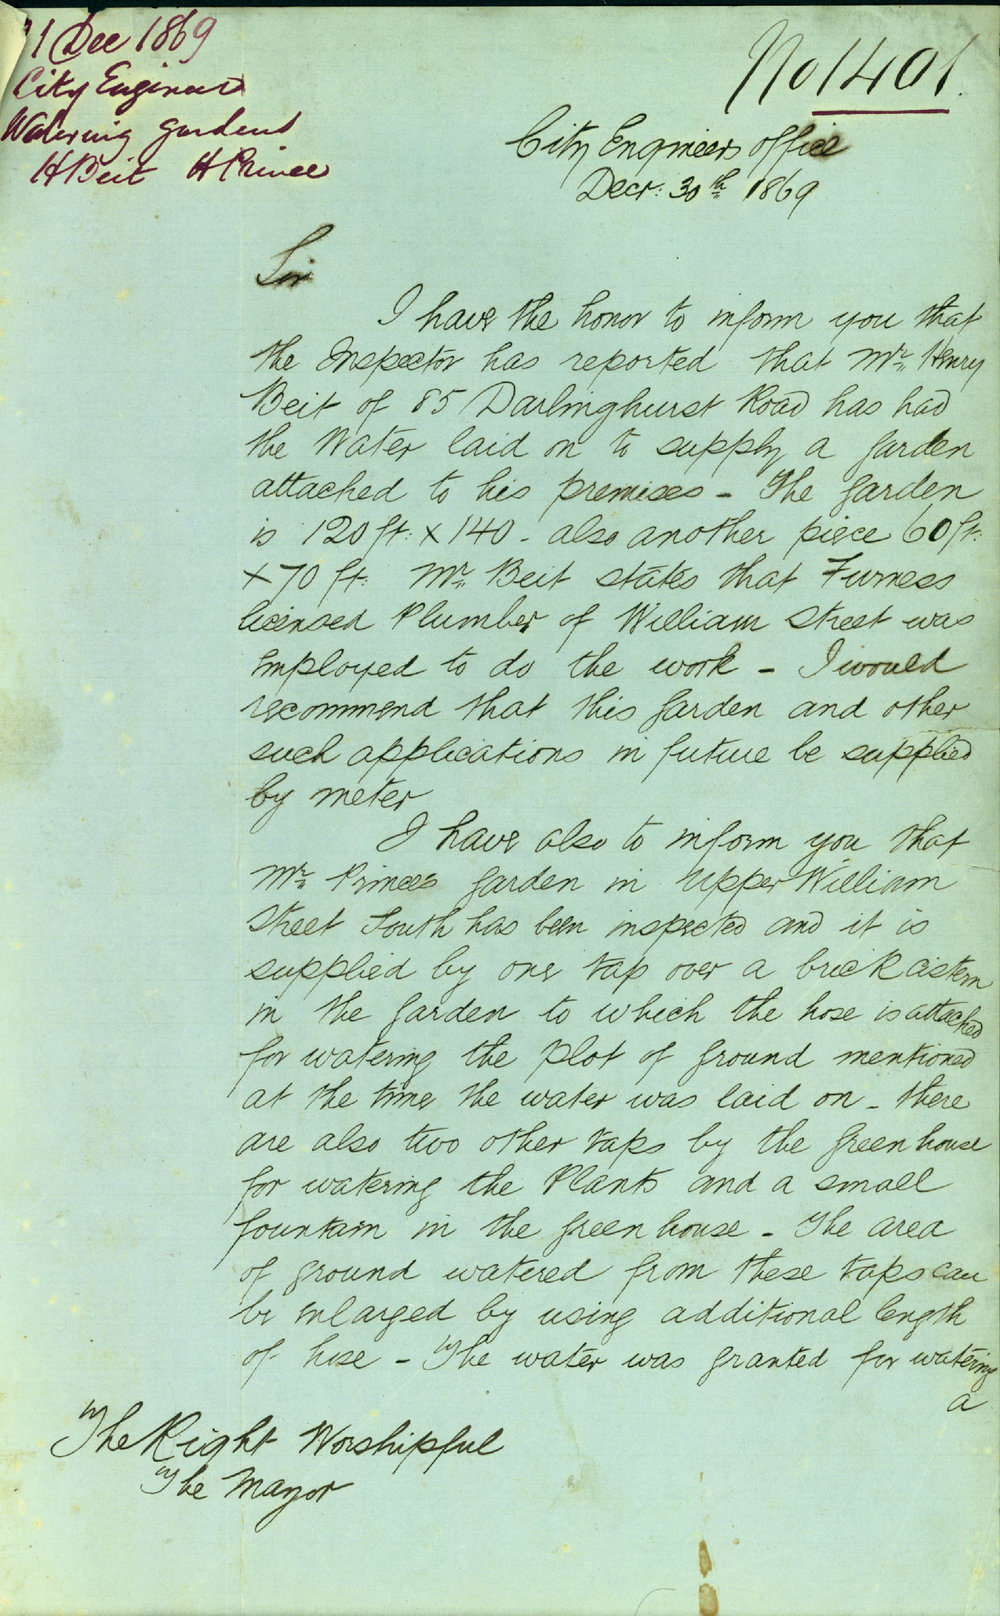 31 Dec 1869
City Engineer
Watering gardens
H Beit H Prince
No 1401.
City Engineers office
Decr: 30th 1869
Sir
I have the honor to inform you that
the Inspector has reported that Mr. Henry
Beit of 85 Darlinghurst Road has had
the Water laid on to supply a garden
attached to his premises - The garden
is 120 ft: x 140 - also another piece 60 ft:
x 70 ft: Mr. Beit states that Furness
licensed Plumber of William Street was
employed to do the work - I would
recommend that this garden and other
such applications in future be supplied
by meter
I have also to inform you that
Mr. Princes garden in Upper William
Street South has been inspected and it is
supplied by one tap over a brick cistern
in the garden to which the hose is attached
for watering the plot of ground mentioned
at the time the water was laid on - there
are also two other taps by the green house
for watering the Plants and a small
fountain in the green house - The area
of ground watered from these taps can
be enlarged by using additional length
of hose - The water was granted for watering
a
The Right Worshipful
The Mayor